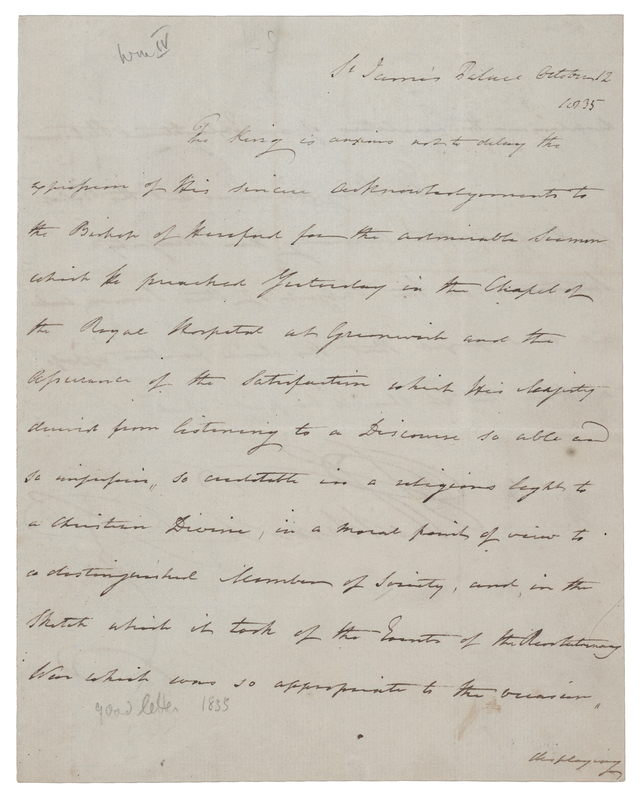 Wm IV
St James's Palace October 12
1835
The King is anxious not to delay the
expression of His sincere acknowledgements to
the Bishop of Hereford for the admirable Sermon
which He preached Yesterday in the Chapel of
the Royal Hospital at Greenwich and the
assurance of the Satisfaction which His Majesty
derived from listening to a Discourse so able and
so impressive, so creditable in a religious light to
a Christian Divine, in a moral point of view to
a distinguished Member of Society, and, in the
Sketch which it took of the Events of the Revolutionary
War which was so appropriate to the occasion,
good letter 1835
displaying